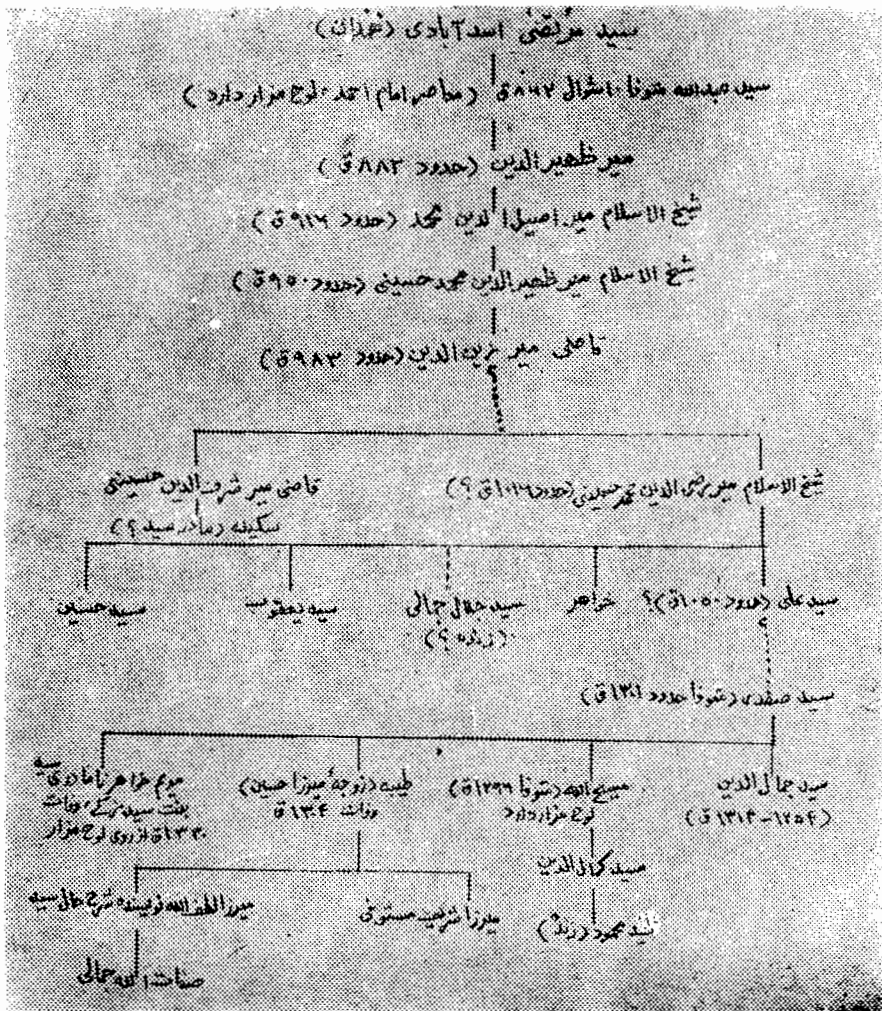 سید مرتضی اسدآبادی (همدان)
سید عبدالله متوفا ۱۰ شوال ۸۶۲ ق (معاصر امام احمد، لوح مزار دارد)
میر ظهیر الدین (حدود ۸۸۳ ق)
شیخ الاسلام میر اصیل الدین محمد (حدود ۹۱۶ ق)
شیخ الاسلام میر ظهیر الدین محمد حسینی (حدود ۹۵۰ ق)
قاضی میر زین الدین (حدود ۹۸۳ ق)
شیخ الاسلام میر رضی الدین محمد حسینی (حدود ۱۰۲۶ ق ؟)
قاضی میر شرف الدین حسینی
سکینه (مادر سید ؟)
سید علی (حدود ۱۰۵۰ ق) ؟
خواهر
سید جلال جمالی
(زنده ؟)
سید یعقوب
سید حسین
سید صفدر (متوفا حدود ۱۳۰۱ ق)
سید جمال الدین
(۱۲۵۴-۱۳۱۴ ق)
مسیح الله (متوفا ۱۲۹۶ ق)
لوح مزار دارد
طیبه (زوجهٔ میرزا حسین)
وفات ۱۳۰۴ ق
مریم خواهر نامادری سید
بنت سید وفات
۱۳۳۰ ق از روی لوح مزار
سید کمال الدین
سید محمود (زنده)
میرزا شریف مستوفی
میرزا لطف الله نویسنده شرح حال سید
صفات الله جمالی